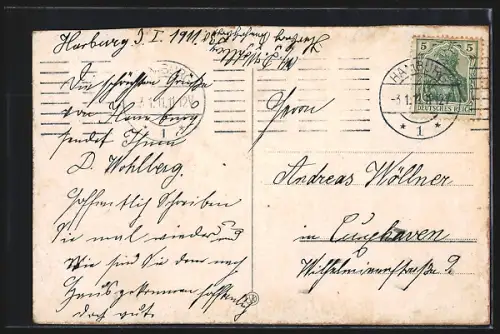 Harburg 3. I. 1911.
Die schönsten Grüße
von Harburg
sendet Ihnen
D. Wohlberg.
Hoffentlich schreiben
Sie mal wieder
Wie sind Sie denn nach
Haus gekommen hoffentlich
doch gut.
5 5
DEUTSCHES REICH
HAMBURG
3.1.11.11-12V
* 1 *
Herrn
Andreas Wöllner
in Cuxhaven